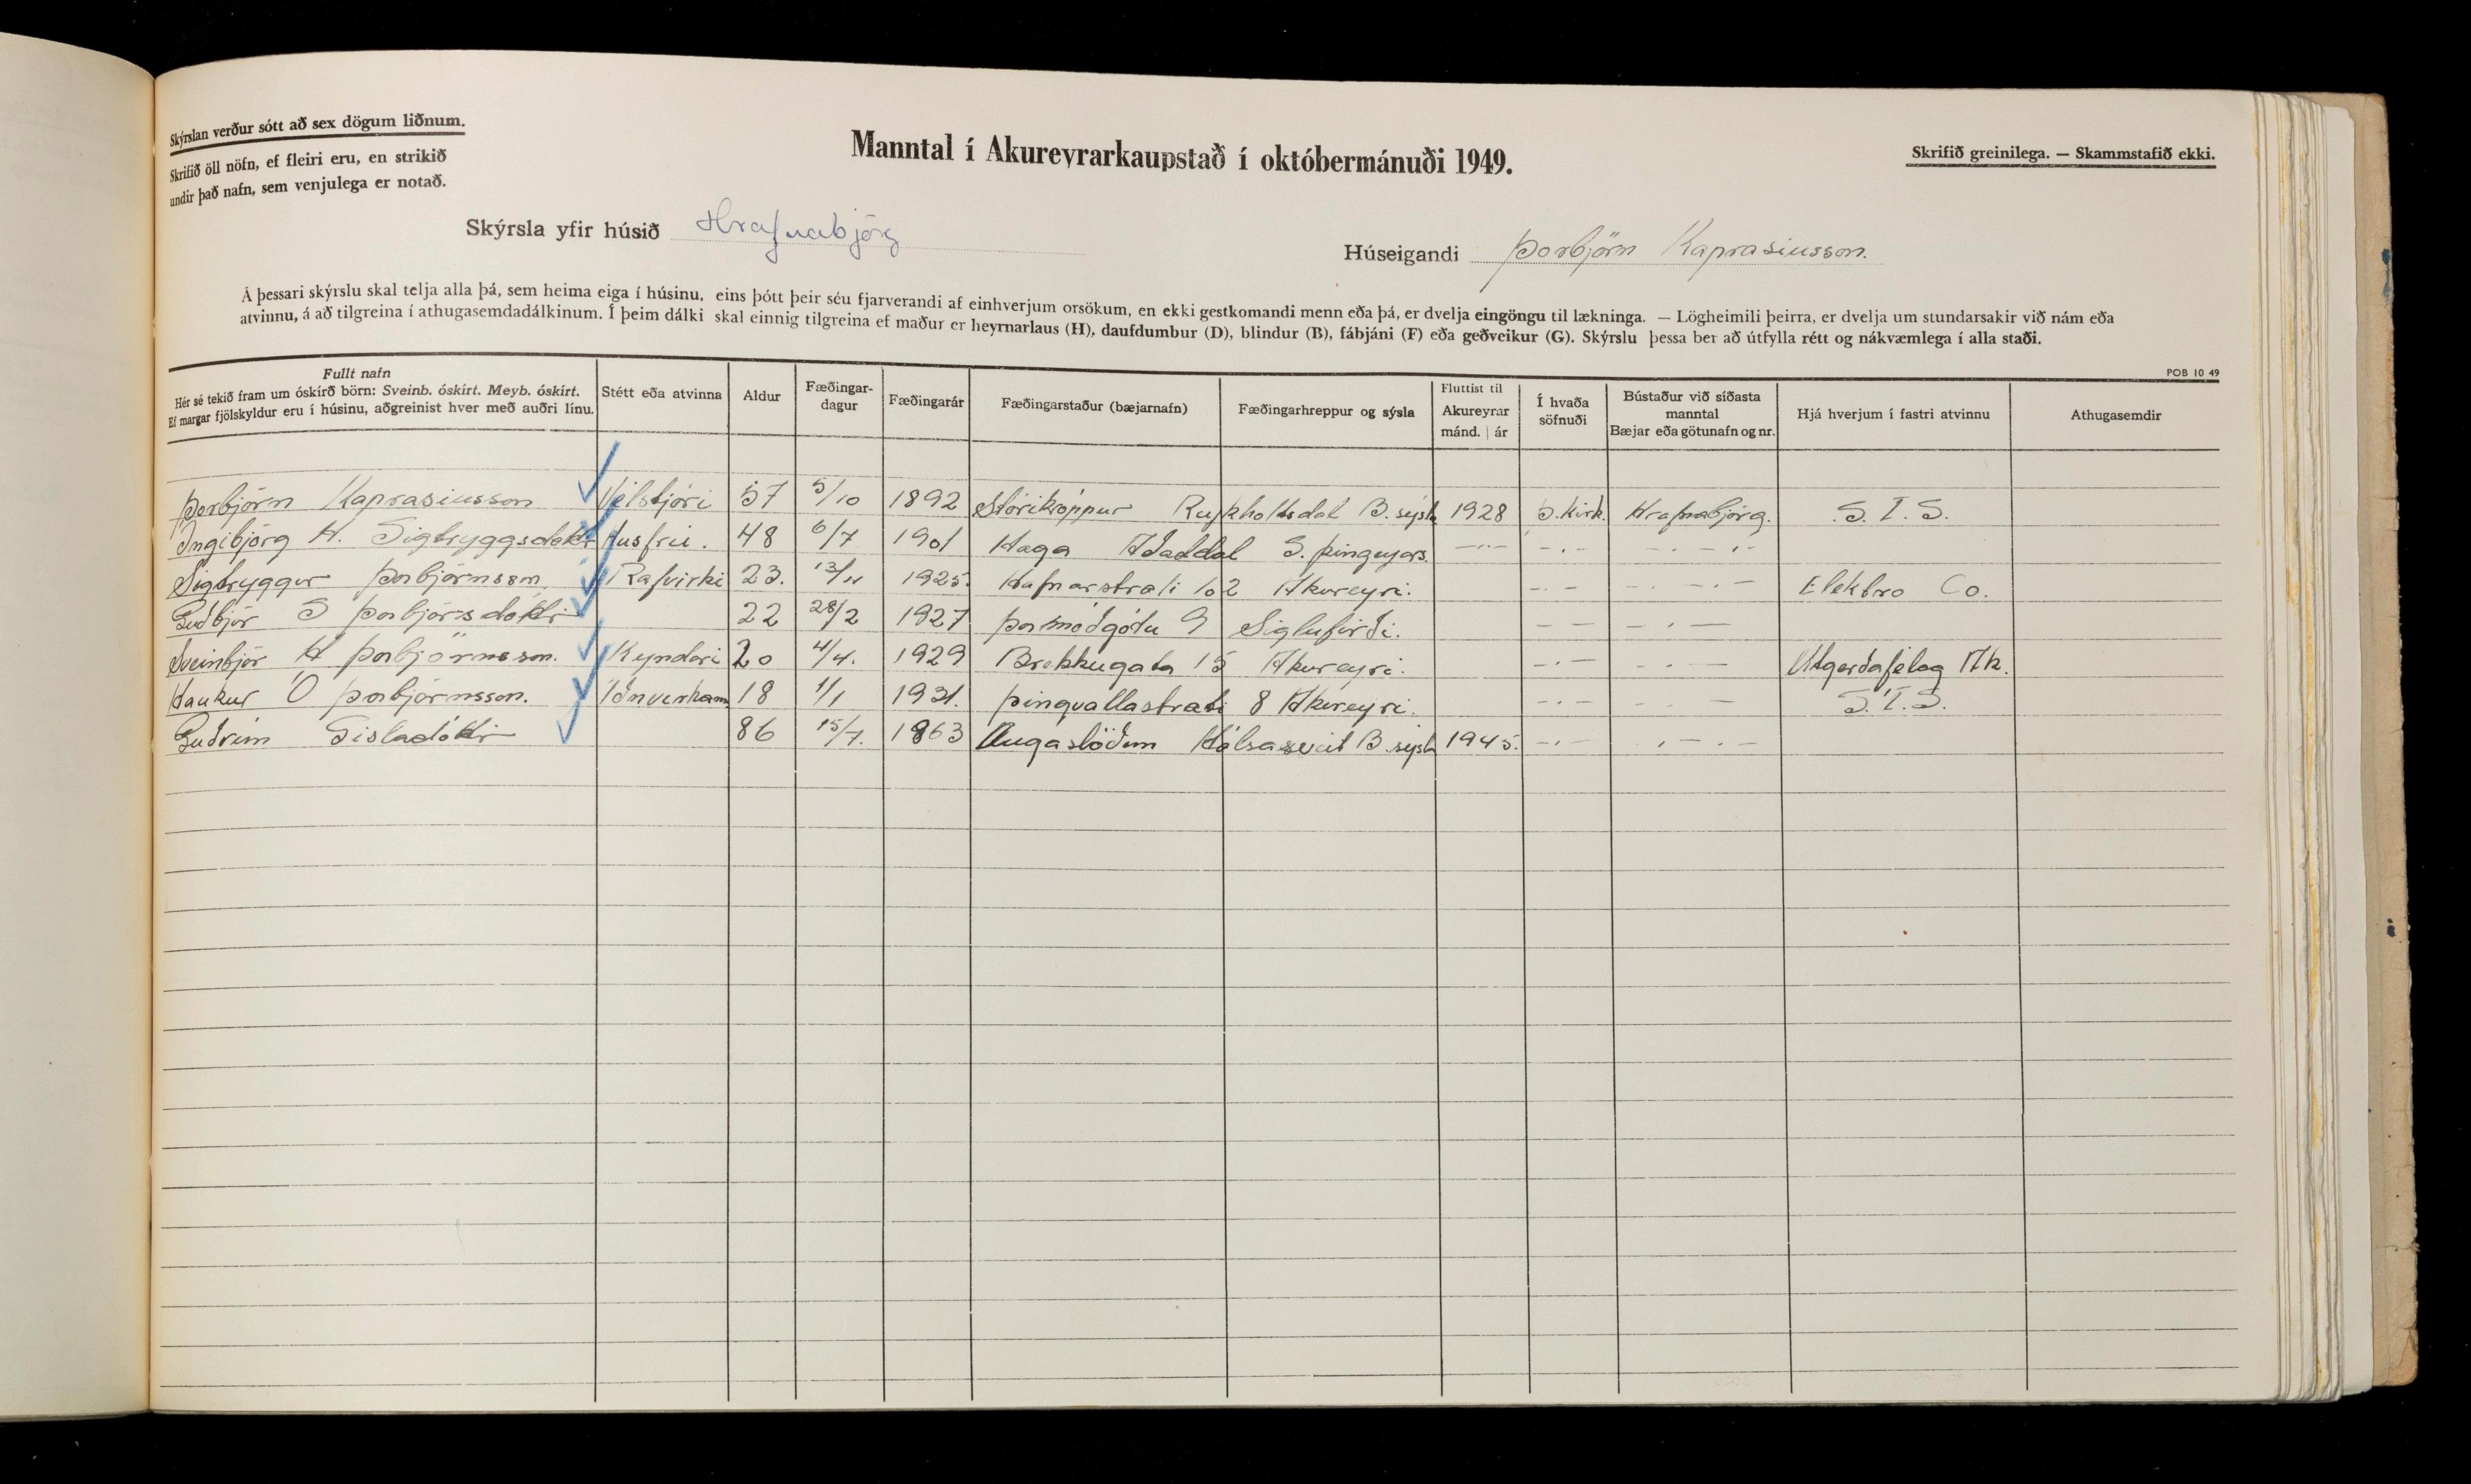 Skýrslan verður sótt að sex dögum liðnum.
Skrifið öll nöfn, ef fleiri eru, en strikið
undir það nafn, sem venjulega er notað.
Manntal í Akureyrarkaupstað í októbermánuði 1949.
Skrifið greinilega. — Skammstafið ekki.
Skýrsla yfir húsið Hrafnabjörg
Húseigandi Þorbjörn Kaprasiusson.
Á þessari skýrslu skal telja alla þá, sem heima eiga í húsinu, eins þótt þeir séu fjarverandi af einhverjum orsökum, en ekki gestkomandi menn eða þá, er dvelja eingöngu til lækninga. — Lögheimili þeirra, er dvelja um stundarsakir við nám eða
atvinnu, á að tilgreina í athugasemdadálkinum. Í þeim dálki skal einnig tilgreina ef maður er heyrnarlaus (H), daufdumbur (D), blindur (B), fábjáni (F) eða geðveikur (G). Skýrslu þessa ber að útfylla rétt og nákvæmlega í alla staði.
POB 10 49
Fullt nafn
Hér sé tekið fram um óskírð börn: Sveinb. óskírt. Meyb. óskírt.
Ef margar fjölskyldur eru í húsinu, aðgreinist hver með auðri línu.
Stétt eða atvinna
Aldur
Fæðingar-
dagur
Fæðingarár
Fæðingarstaður (bæjarnafn)
Fæðingarhreppur og sýsla
Fluttist til
Akureyrar
mánd. | ár
Í hvaða
söfnuði
Bústaður við síðasta
manntal
Bæjar eða götunafn og nr.
Hjá hverjum í fastri atvinnu
Athugasemdir
Þorbjörn Kaprasiusson Vélstjóri 57 5/10 1892 Stórikroppur Reykholtsdal B. sýsla 1928 Þ. Kirk. Hrafnabjörg. S. I. S.
Ingibjörg H. Sigtryggsdóttir Husfrú. 48 6/7 1901 Haga Aðaldal S. Þingeyjars. —·—· —·— —·—·—
Sigtryggur Þorbjörnsson Rafvirki 23. 13/11 1925. Hafnarstræti 102 Akureyri. —·— —·—·— Elektro Co.
Guðbjör S Þorbjörsdóttir 22 28/2 1927 Þormóðgötu 9 Siglufirði. — — —·—
Sveinbjör H Þorbjörnsson. Kyndari 20 4/4. 1929 Brekkugata 15 Akureyri. —·— —·— Utgerðafélag Ak.
Haukur Ó Þorbjörnsson. Iðnverkam 18 1/1 1931. Þingvallastræti 8 Akureyri. —·— —·— S. I. S.
Guðrún Gisladóttir 86 15/7. 1863 Augastöðum Hálsasveit B. sýsla 1945. —·— —·—·—